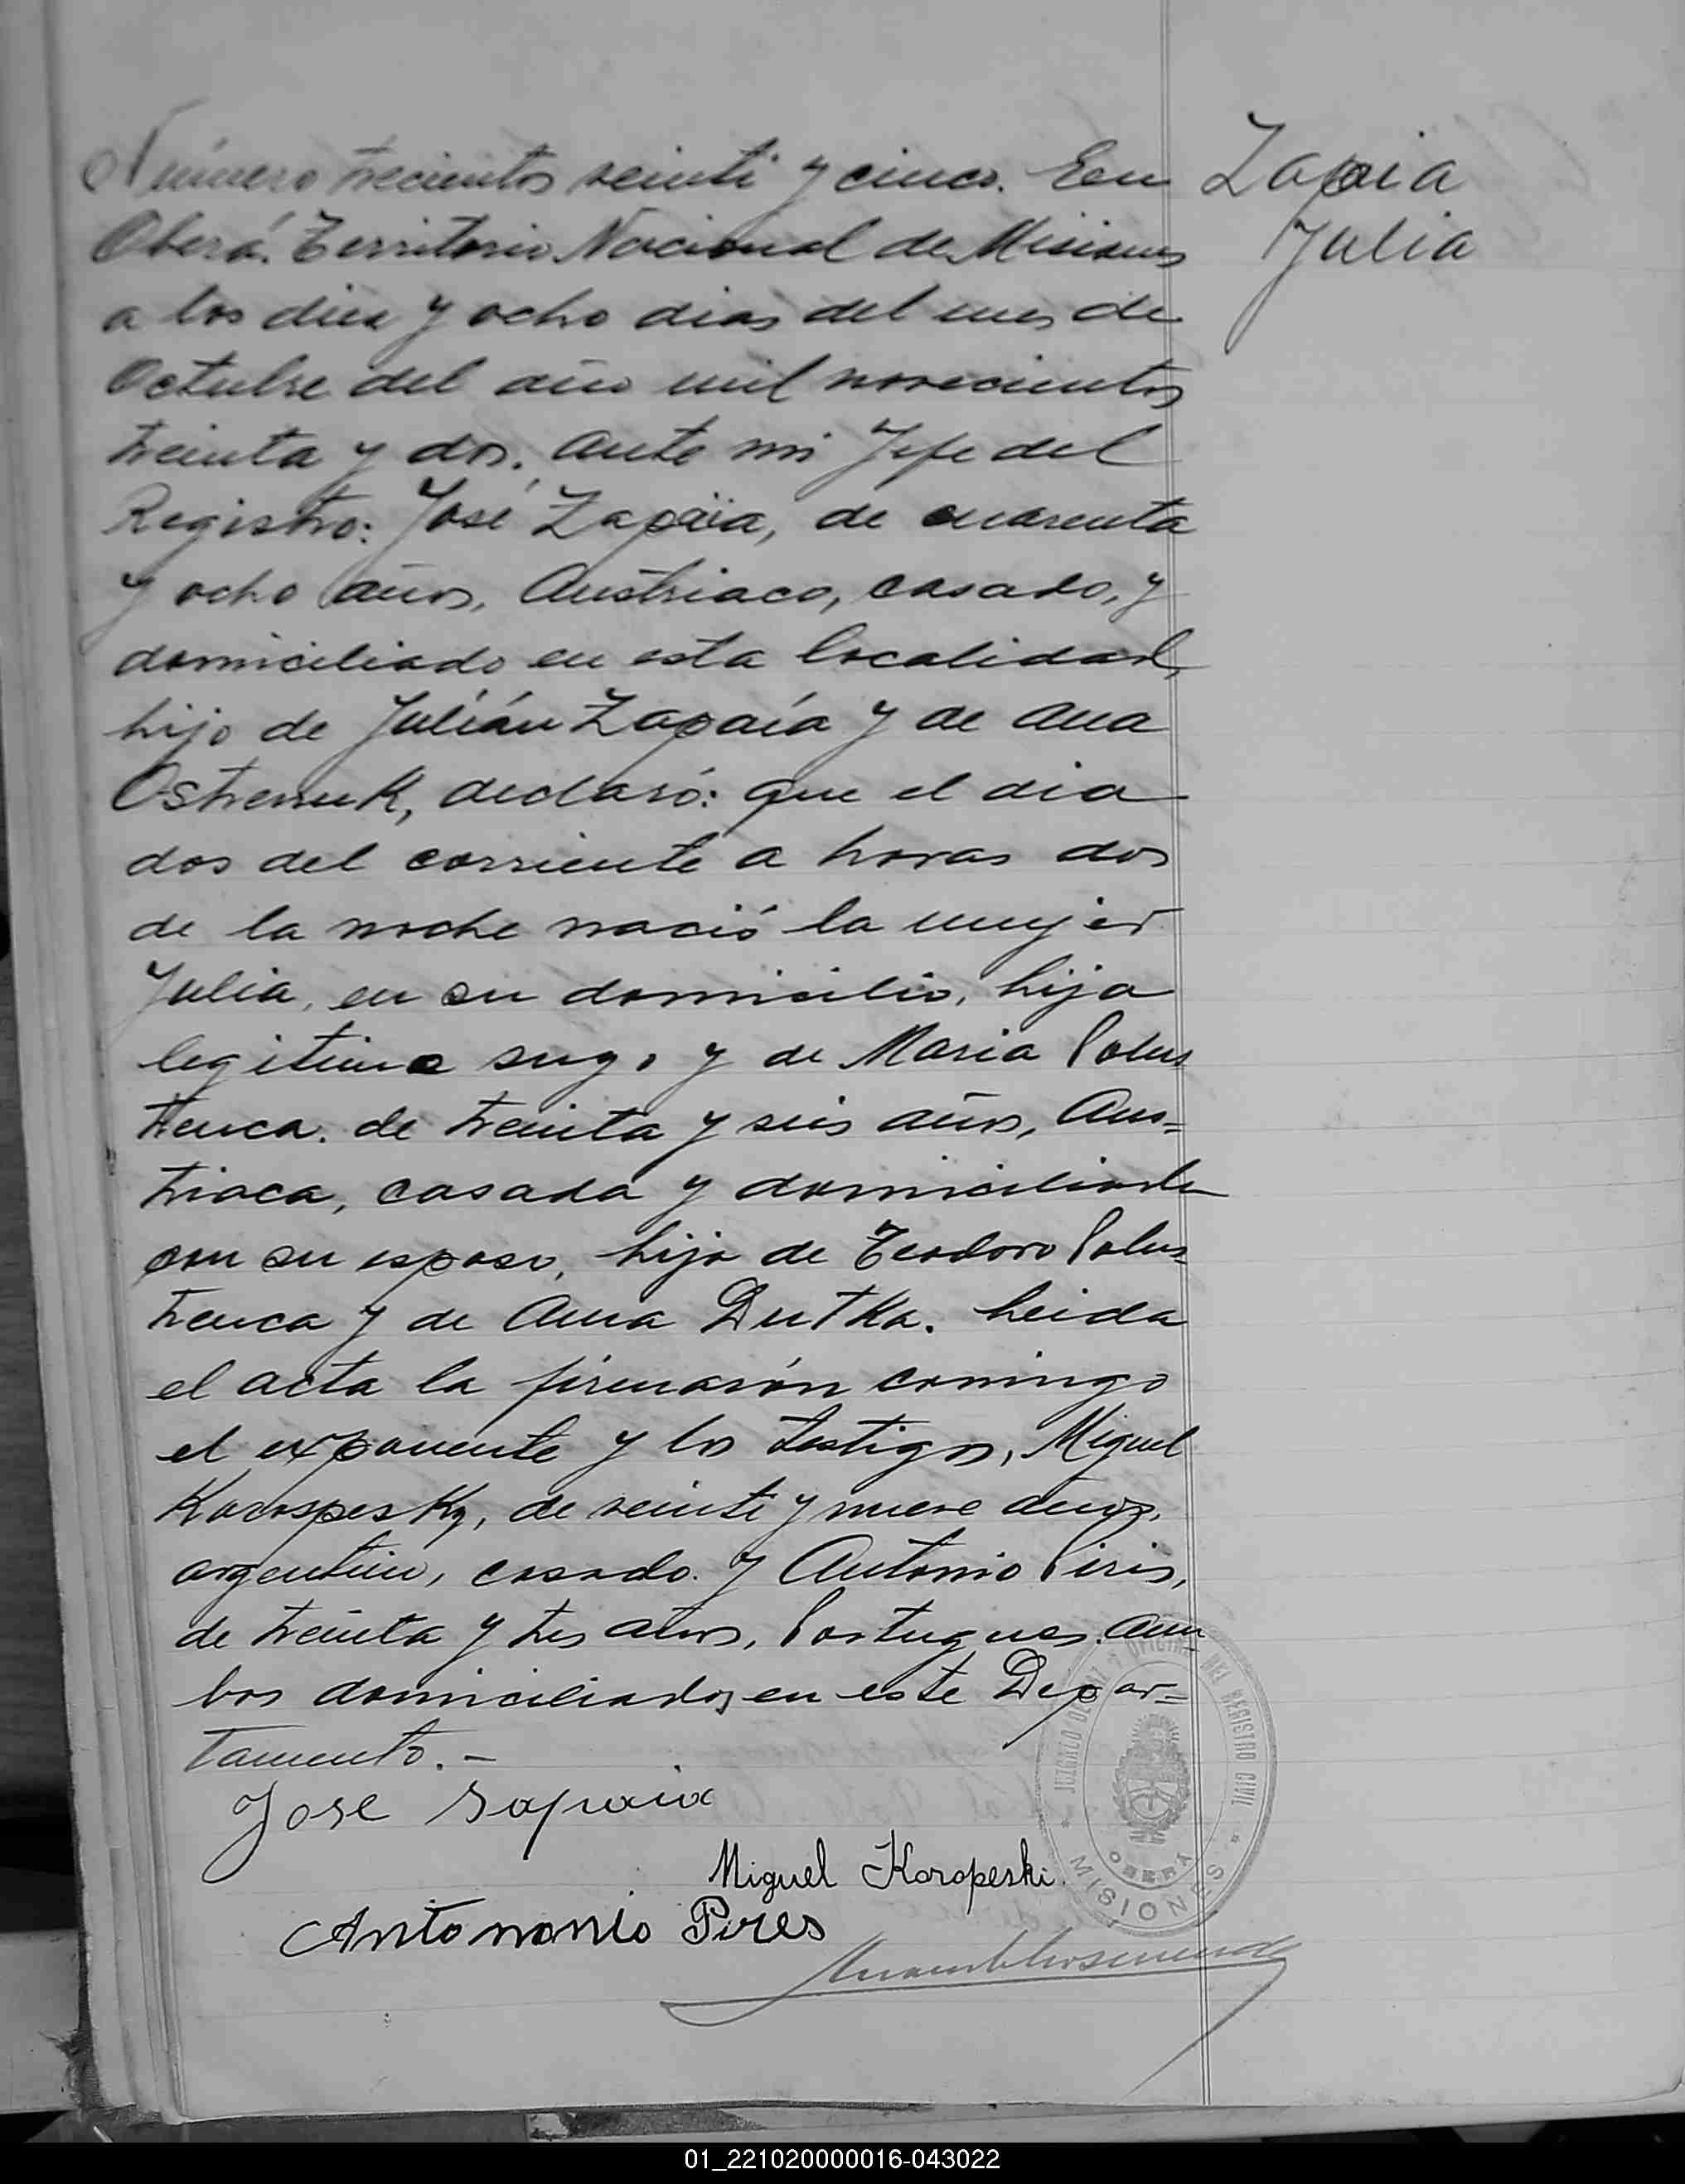 Número trecientos veinti y cinco. Een
Oberá. Territorio Nacional de Misiones
a los diez y ocho dias del mes de
Octubre del año mil novecientos
treinta y dos. ante mi Jefe del
Registro: José Zapaia, de cuarenta
y ocho años, Austriaco, casado, y
domiciliado en esta localidad,
hijo de Julián Zapaía y de Ana
Ostrenuk, declaró: que el dia
dos del corriente a horas dos
de la noche nació la mujer
Julia, en su domicilio, hija
legitima suya y de Maria Polus
trenca. de treinta y seis años, Aus=
triaca, casada y domiciliada
con su esposo, hija de Teodoro Polus=
trenca y de Anna Dutka. Leida
el acta la firmarón comingo
el exponente y los testigos, Miguel
Korospesky, de veinte y nueve años,
argentino, casado. y Antonio Piris,
de treinta y tres años, Portugues. Am
bos domiciliados en este Depar=
tamento.-
Jose Sapaia
Miguel Koropeski.
Antononio Pires
Zapaia
Julia
JUZGADO DE PAZ Y OFICINA DEL REGISTRO CIVIL
OBERÁ
* MISIONES *
01_221020000016-043022